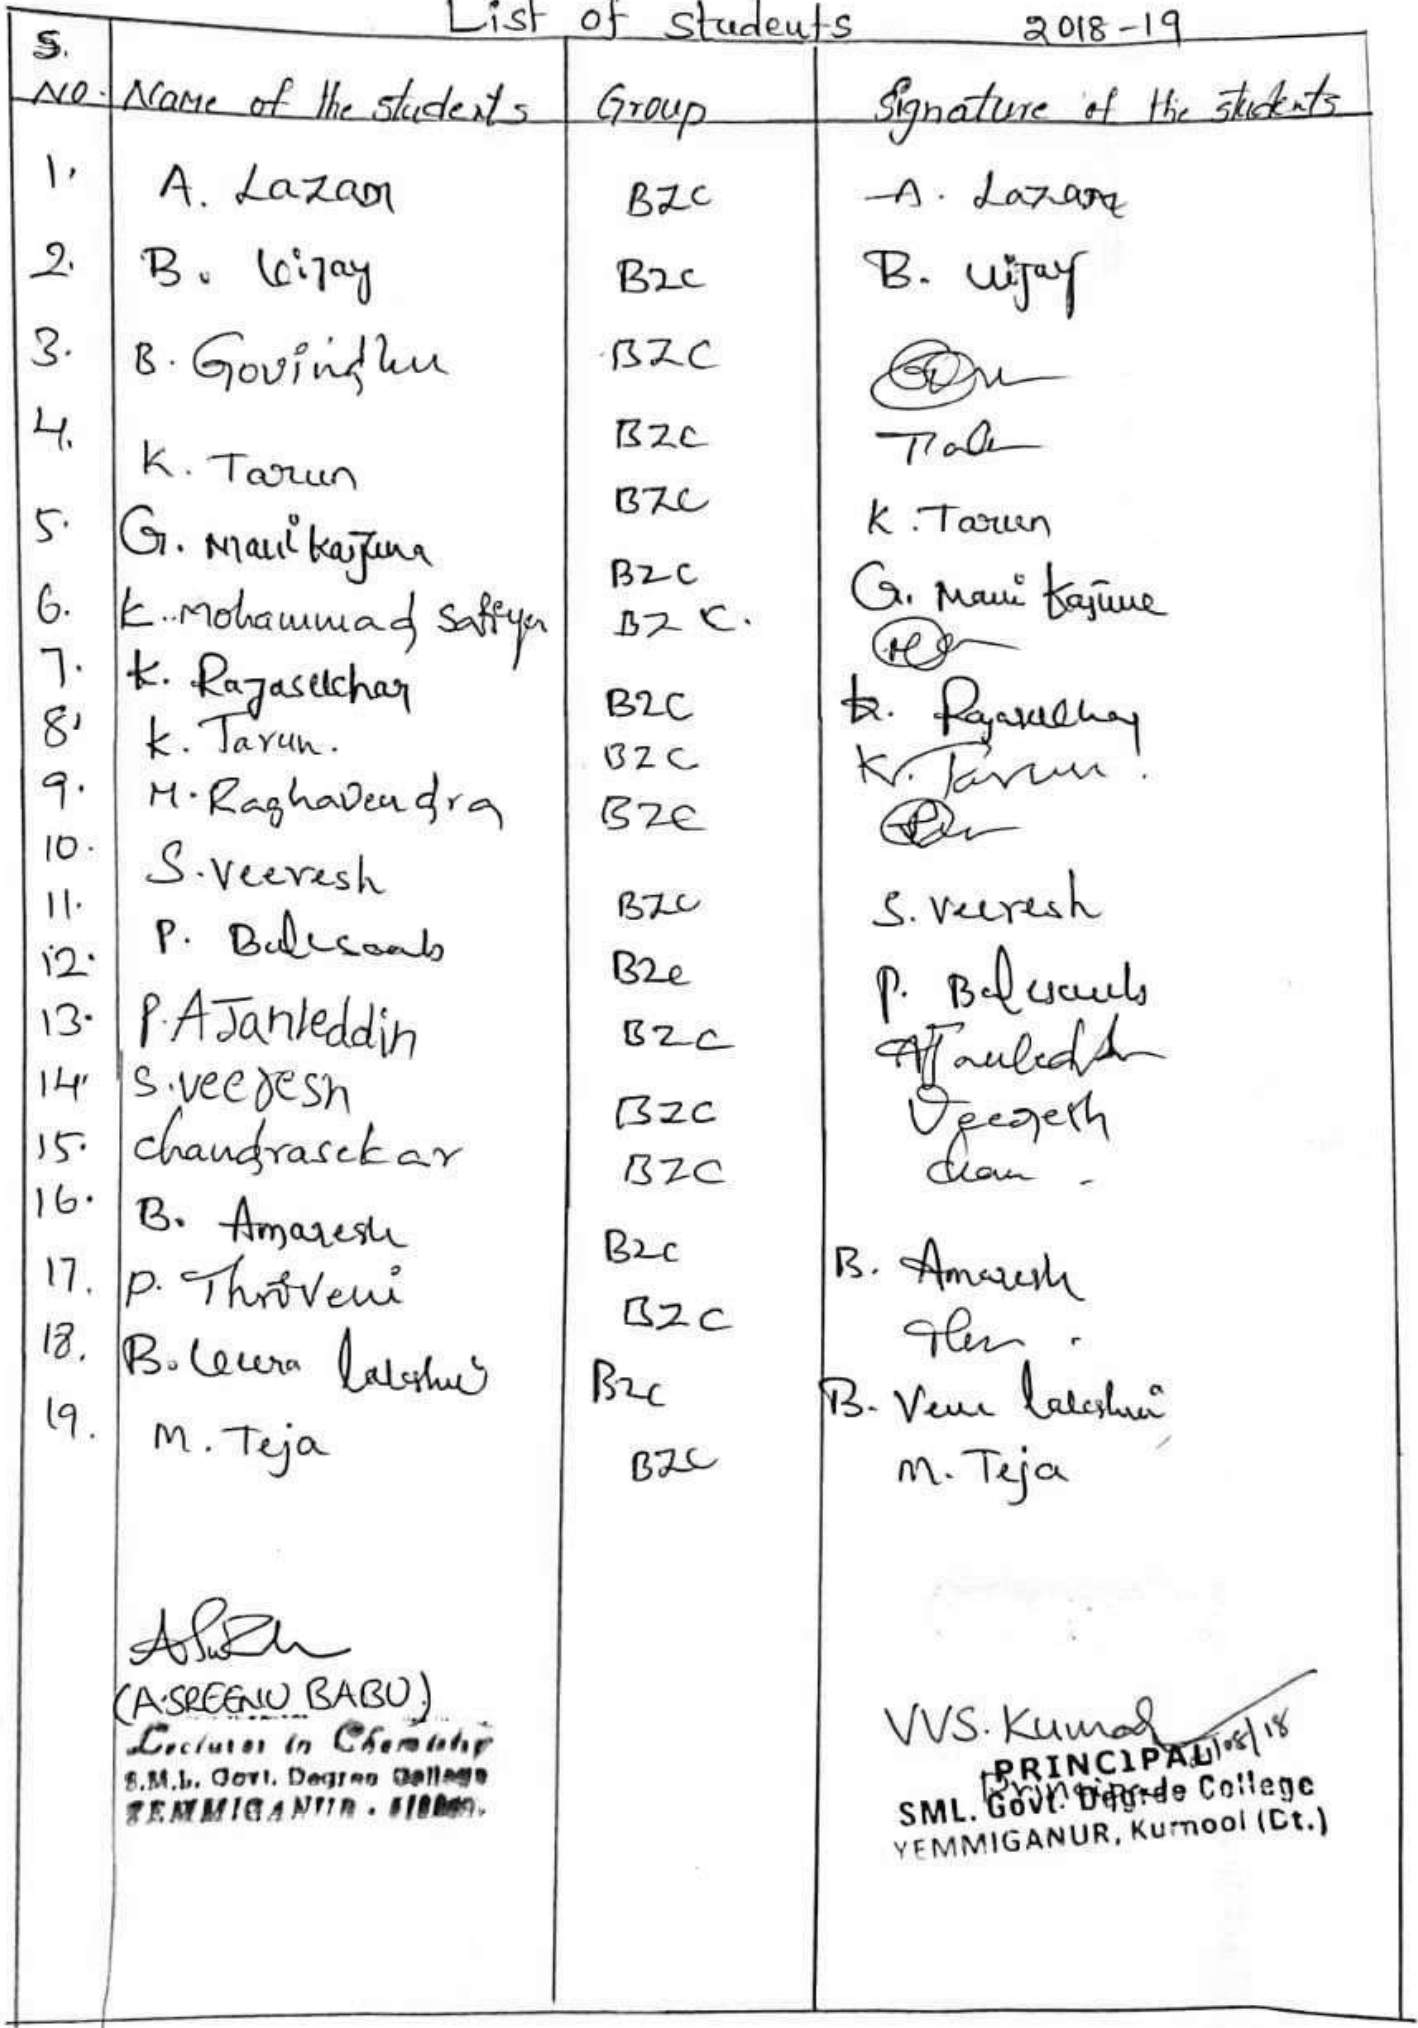 List of students 2018-19
S.
NO. Name of the students Group Signature of the students
1. A. Lazar BZC A. Lazar
2. B. Vijay BZC B. Vijay
3. B. Govindhu BZC
4. K. Tarun BZC
5. G. Mallikarjuna BZC K. Tarun
6. K. Mohammad Safiya BZC G. Mallikarjuna
BZC.
7. K. Rajasekhar BZC K. Rajasekhar
8. K. Tarun. BZC K. Tarun.
9. M. Raghavendra BZC
10. S. Veeresh BZC S. Veeresh
11. P. Balisaab BZC P. Balisaab
12. P. AJanleddin BZC AJanleddin
13. S. veeresh BZC Veeresh
14. chandrasekar BZC chan
15. B. Amaresh BZC B. Amaresh
16. P. Thriveni BZC
17. B. Veera lakshmi BZC B. Veera lakshmi
18. M. Teja BZC M. Teja
19.
(A.SREENU BABU)
Lecturer in Chemistry
S.M.L. Govt. Degree College
YEMMIGANUR.
VVS. Kumar
PRINCIPAL
SML. Govt. Degree College
YEMMIGANUR, Kurnool (Dt.)